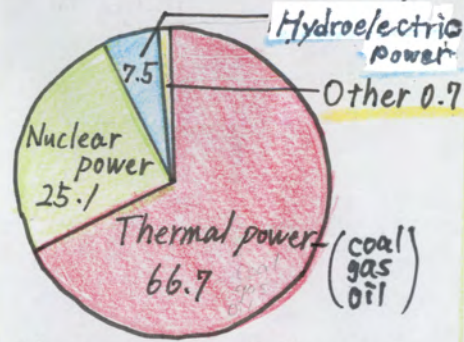 Hydroelectric
power
7.5
Other 0.7
Nuclear
power
25.1
Thermal power
66.7
(coal
gas
oil)